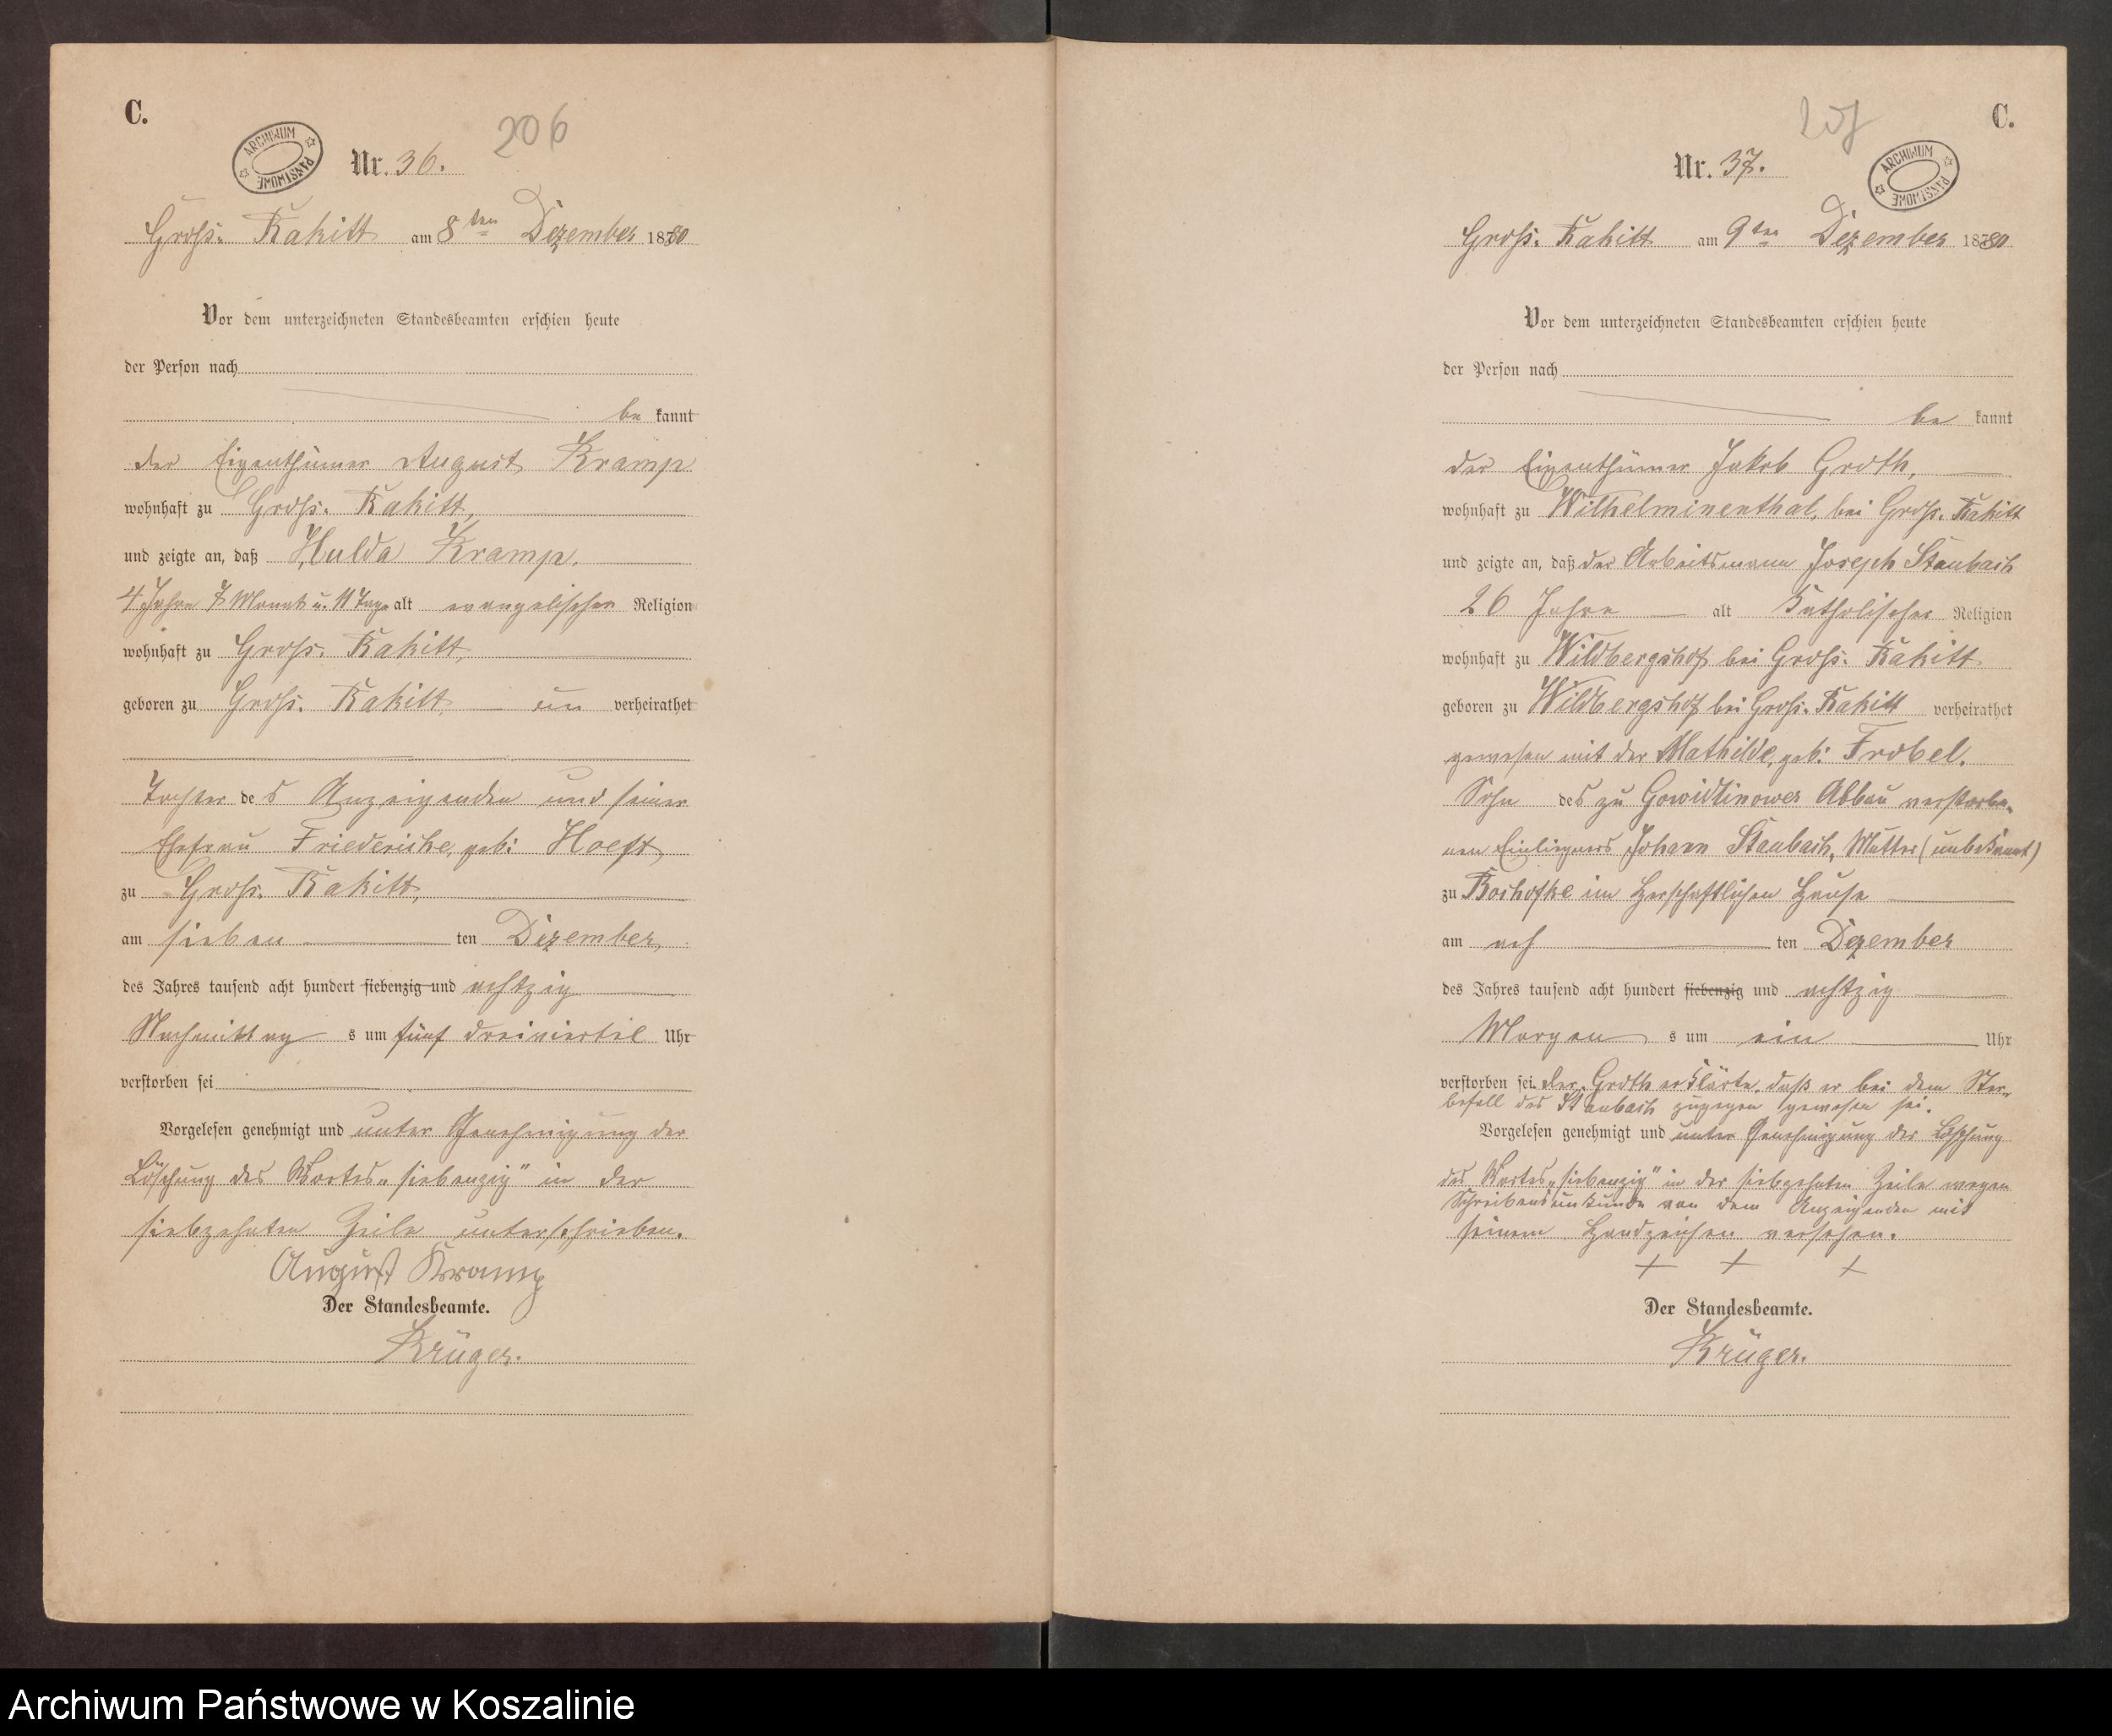 C.
ARCHIWUM PAŃSTWOWE
206
Nr. 36.
Groß. Rakitt am 8ten Dezember 1880
Vor dem unterzeichneten Standesbeamten erschien heute
der Person nach
be kannt
der Eigenthümer August Kramp
wohnhaft zu Groß. Rakitt,
und zeigte an, daß Hulda Kramp.
4 Jahre 7 Monat u. 11 Tage alt evangelischer Religion
wohnhaft zu Groß. Rakitt,
geboren zu Groß. Rakitt, un verheirathet
Tochter des Anzeigenden und seiner
Ehefrau Friedericke, geb: Hoeft,
zu Groß. Rakitt,
am sieben ten Dezember,
des Jahres tausend acht hundert siebenzig und achtzig
Nachmittag s um fünf dreiviertel Uhr
verstorben sei
Vorgelesen genehmigt und unter Genehmigung der
Löschung des Wortes „siebenzig" in der
siebzehnten Zeile unterschrieben.
August Kramp
Der Standesbeamte.
Krüger.
C.
207
ARCHIWUM PAŃSTWOWE
Nr. 37.
Groß. Rakitt am 9ten Dezember 1880
Vor dem unterzeichneten Standesbeamten erschien heute
der Person nach
be kannt
der Eigenthümer Jakob Groth,
wohnhaft zu Wilhelminenthal, bei Groß. Rakitt
und zeigte an, daß der Arbeitsmann Joseph Staubach
26 Jahre alt Katholischer Religion
wohnhaft zu Wildbergshof bei Groß. Rakitt
geboren zu Wildbergshof bei Groß. Rakitt verheirathet
gewesen mit der Mathilde, geb: Frobel.
Sohn des zu Gowidlinower Abbau verstorbe-
nen Einliegers Johann Staubach, Mutter (unbekannt)
zu im Herschaftlichen Hause
am ach ten Dezember
des Jahres tausend acht hundert siebenzig und achtzig
Morgen s um ein Uhr
verstorben sei. Der Groth erklärte, daß er bei dem Ster-
befall des Staubach zugegen gewesen sei.
Vorgelesen genehmigt und unter Genehmigung der Löschung
des Wortes „siebenzig" in der siebzehnten Zeile wegen
Schreibensunkunde von dem Anzeigenden mit
seinem Handzeichen versehen.
+ + +
Der Standesbeamte.
Krüger.
Archiwum Państwowe w Koszalinie